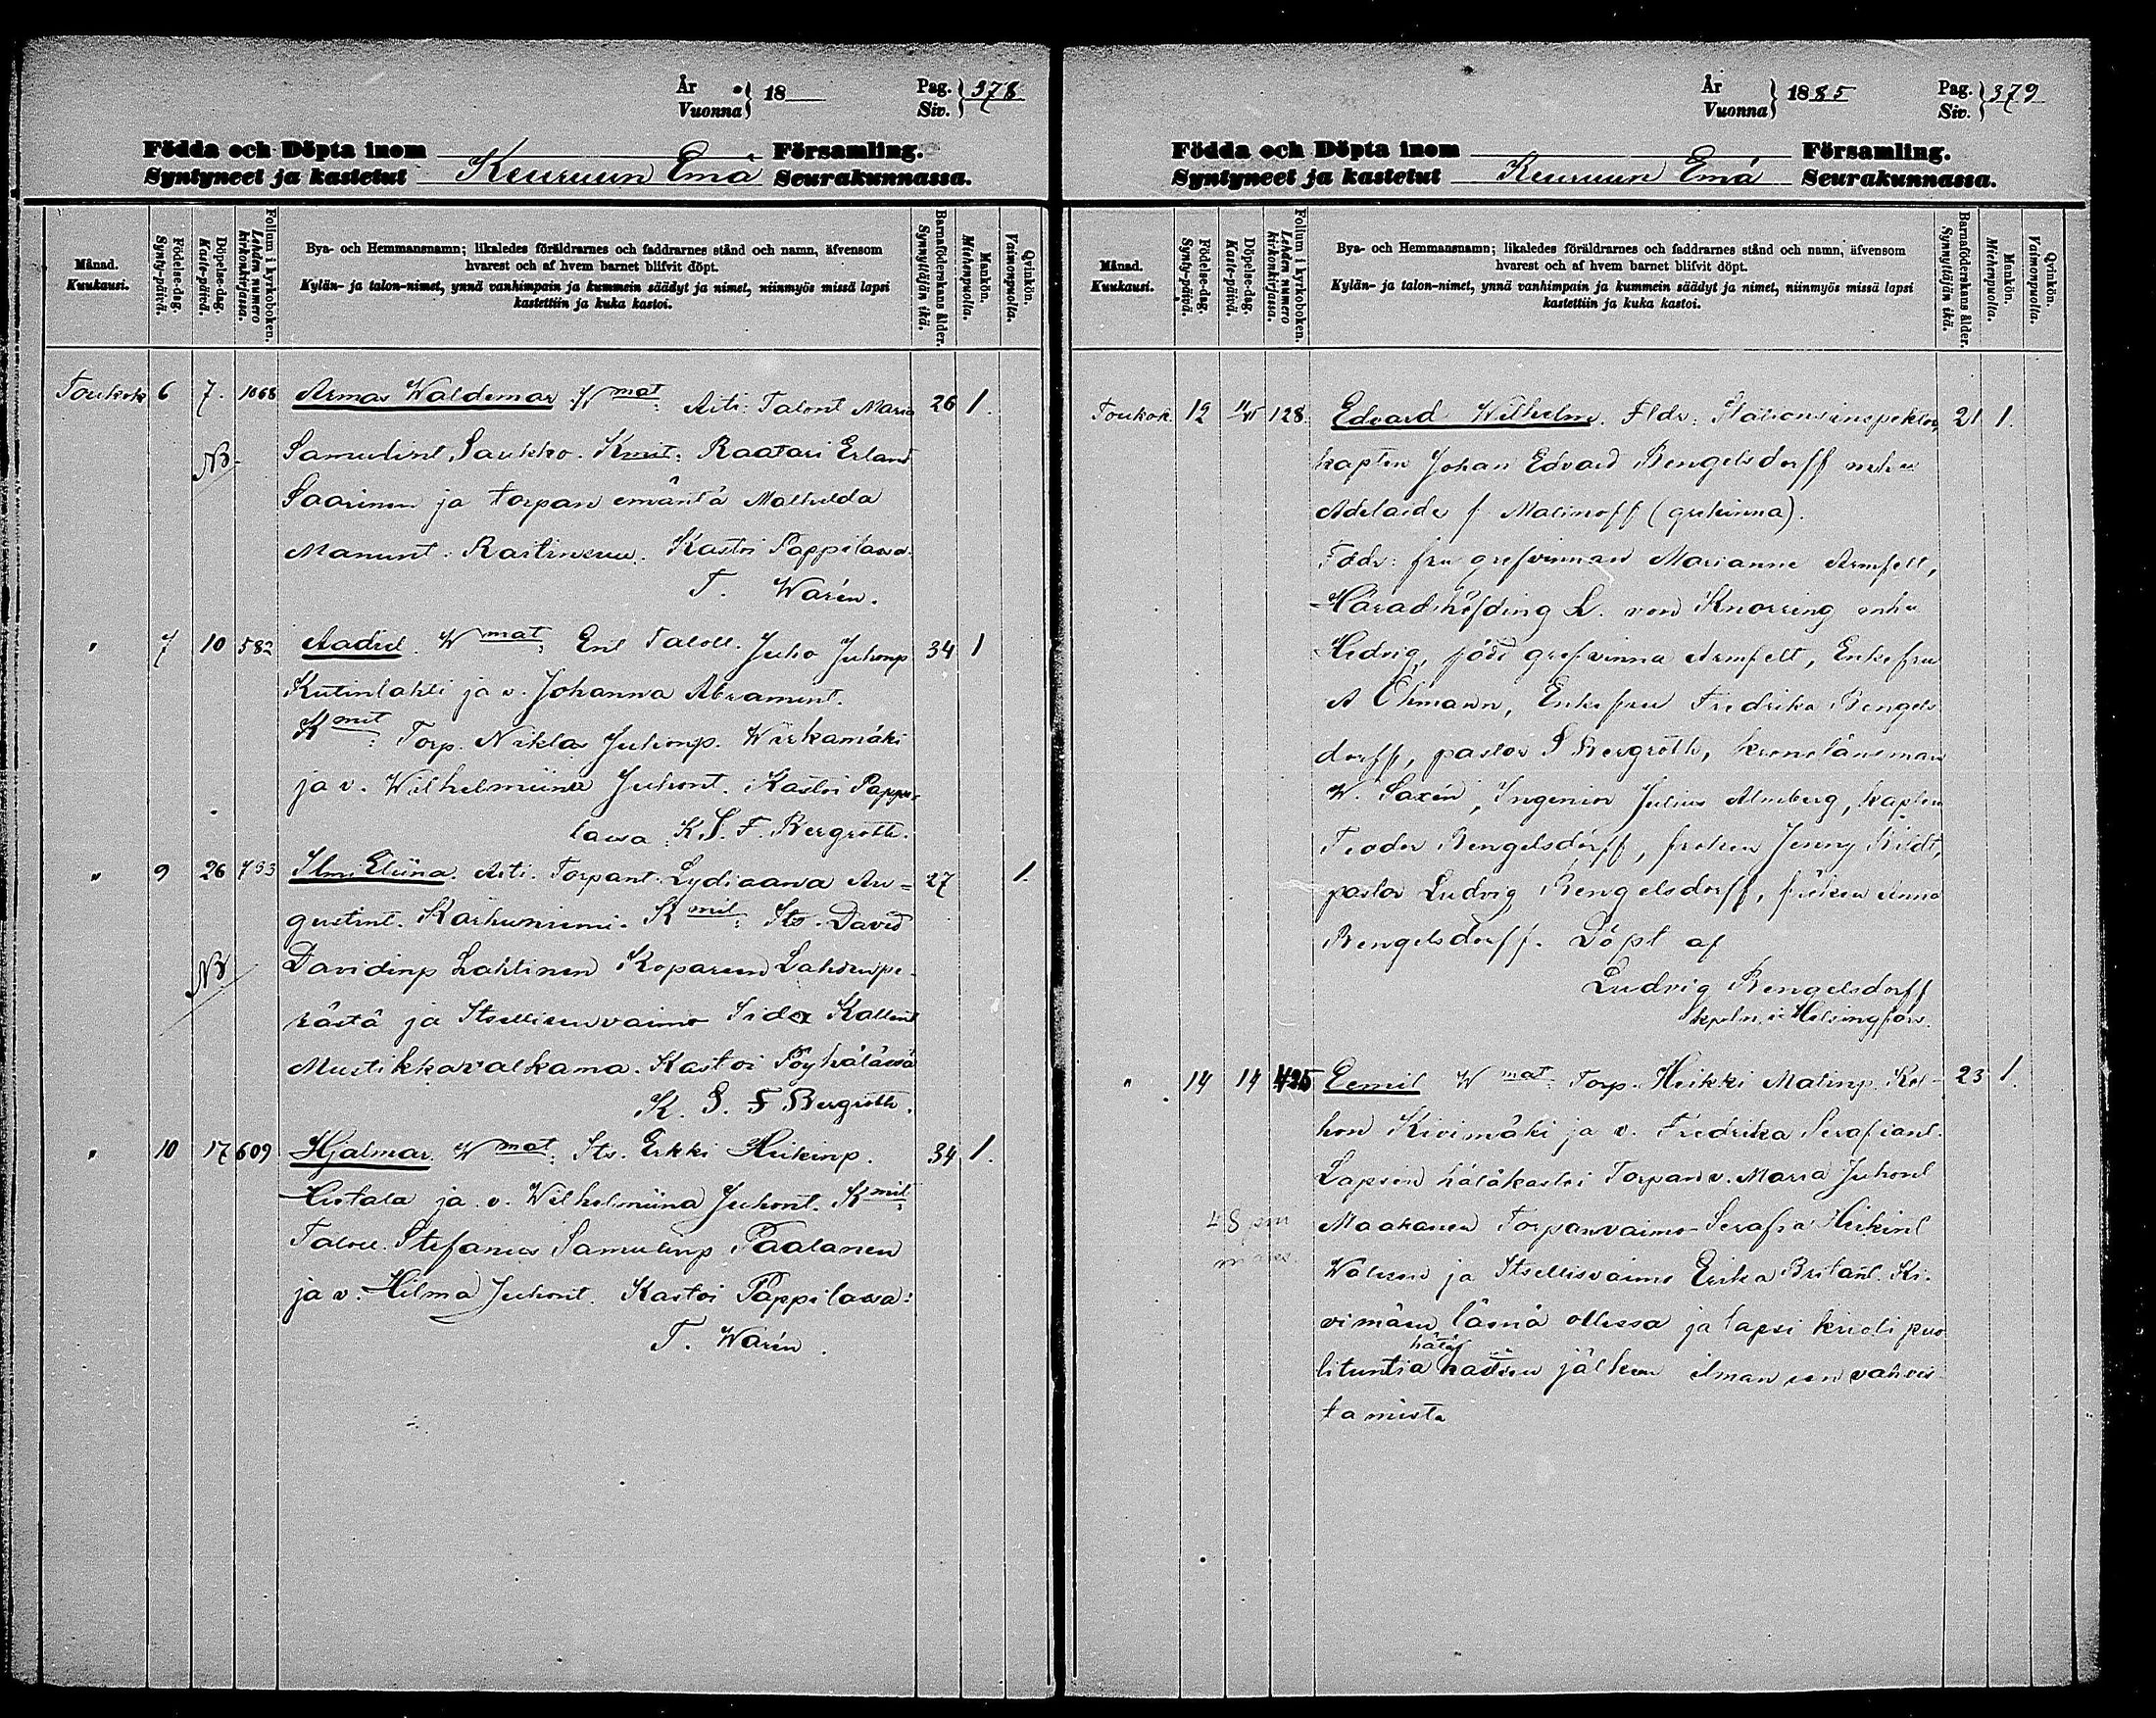 År Vuonna } 18
Pag. Siv. } 378
Födda och Döpta inom Församling.
Syntyneet ja kastetut Keuruun Emä Seurakunnassa.
Månad. Kuukausi.
Födelse-dag. Synty-päivä.
Döpelse-dag. Kaste-päivä.
Folium i kyrkoboken. Lehden numero kirkonkirjassa.
Bya- och Hemmansnamn; likaledes föräldrarnes och faddrarnes stånd och namn, äfvensom
hvarest och af hvem barnet blifvit döpt.
Kylän- ja talon-nimet, ynnä vanhimpain ja kummein säädyt ja nimet, niinmyös missä lapsi
kastettiin ja kuka kastoi.
Barnaföderskans ålder. Synnyttäjän ikä.
Mankön. Miehenpuolia.
Qvinkön. Vaimonpuolia.
Toukok 6 7. 1068 Armas Waldemar W mat: Äiti: Talont Maria 26 1.
NB. Samulint. Saukko. Kmit: Raatari Erland
Saarinen ja torpan emäntä Mathilda
Manunt. Kastoi Pappilassa
T. Warén.
" 7 10 582 Aadiel. W mat: Ent Taloll. Juho Juhonp 34 1
Kutinlahti ja v. Johanna Abramint.
K mit: Torp. Niklas Juhonp. Wirkamäki
ja v. Wilhelmiina Juhont. Kastoi Pappi-
lassa K. S. F. Bergroth.
" 9 26 733 Ilmi Eliina. Äiti. Torpant. Lydiaana Au= 27 1.
gustint. Karhuniemi. K mit: Its. David
NB Davidinp Lahtinen Koparan Lahdenpe-
rästä ja Itsellisenvaimo Iida Kallent
Mustikkavalkama. Kastoi Pöyhölässä
K. S. F Bergroth.
" 10 17 609 Hjalmar. W mat: Its. Erkki Heikinp. 34 1.
ja v. Wilhelmiina Juhont. K mit:
Taloll. Stefanus Samulinp Paalanen
ja v. Hilma Juhont. Kastoi Pappilassa:
T. Warén.
År Vuonna } 1885
Pag. Siv. } 379
Födda och Döpta inom Församling.
Syntyneet ja kastetut Keuruun Emä Seurakunnassa.
Månad. Kuukausi.
Födelse-dag. Synty-päivä.
Döpelse-dag. Kaste-päivä.
Folium i kyrkoboken. Lehden numero kirkonkirjassa.
Bya- och Hemmansnamn; likaledes föräldrarnes och faddrarnes stånd och namn, äfvensom
hvarest och af hvem barnet blifvit döpt.
Kylän- ja talon-nimet, ynnä vanhimpain ja kummein säädyt ja nimet, niinmyös missä lapsi
kastettiin ja kuka kastoi.
Barnaföderskans ålder. Synnyttäjän ikä.
Mankön. Miehenpuolia.
Qvinkön. Vaimonpuolia.
Toukok. 12 128. Edvard Wilhelm. Fldr: Stationsinspektor, 21 1.
kapten Johan Edvard Bengelsdorff
Adelaide f. Malinoff (grekinna).
Fddr: fru grefvinnan Marianne Armfelt,
Häradshöfding L. von Knorring
Hedvig, född grefvinna Armfelt, Enkefru
A Öhmann, Enkefru Fredrika Bengels
dorff, pastor S Bergroth, kronolänsman
W. Saxén, Ingeniör Julius Almberg, kapten
Teodor Bengelsdorff, fröken Jenny
pastor Ludvig Bengelsdorff, fröken Anna
Bengelsdorff. Döpt af
Ludvig Bengelsdorff
kpln. i Helsingfors.
" 14 14 425 Eemil W mat: Torp. Heikki Matinp. 23 1.
Kivimäki ja v. Fredrika Serafiant.
Lapsen hätäkastoi Torpanv. Maria Juhont
Maahanen Torpanvaimo Serafia Heikint
ja Itsellisvaimo Erika Britant. Ki-
vimäen läsnä ollessa ja lapsi kuoli puo
lituntia hätäkasteen jälkeen ilman sen vahvis
tamista